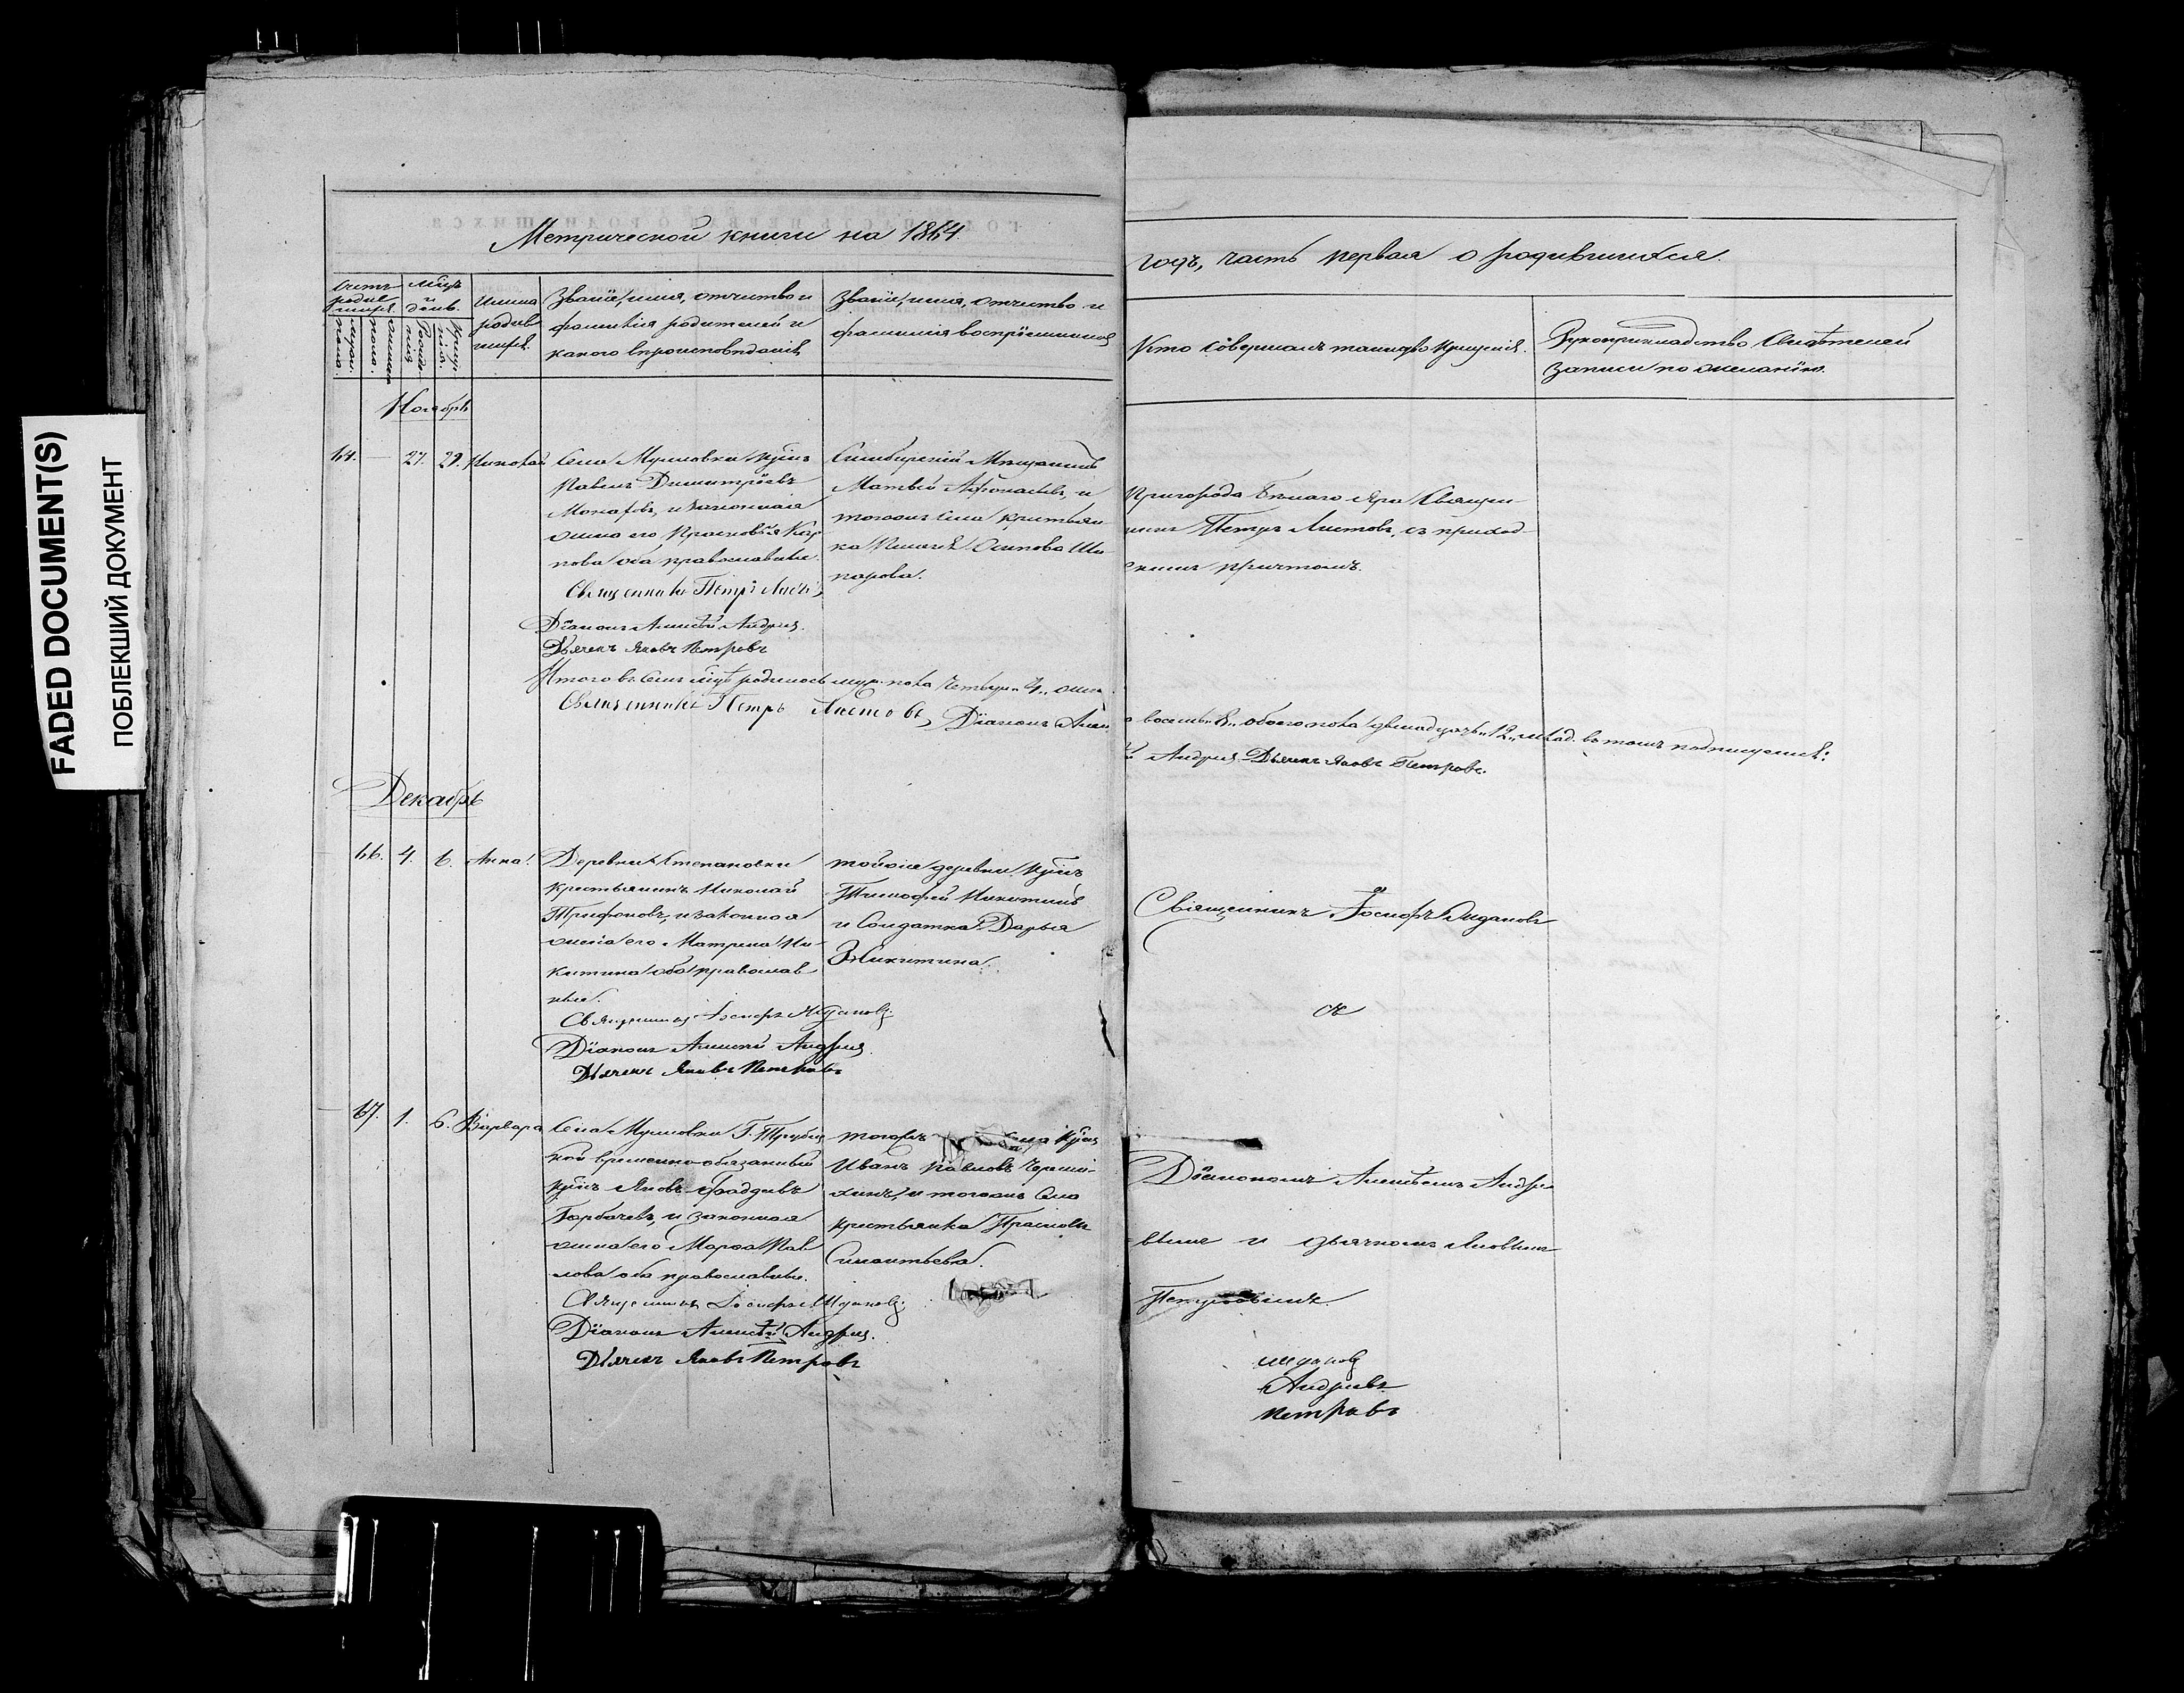 FADED DOCUMENT(S)
ПОБЛЕКШИЙ ДОКУМЕНТ
Метрической книги на 1864.
годъ, часть первая о родившихся.
Счетъ родившихся.
мужеска пола.
женска пола.
Мѣсяцъ и день.
рожденія
крещенія.
Имена
родив
шихся.
Званіе, имя, отчество и
фамилія родителей и
какого вѣроисповѣданія
Званіе, имя, отчество и
фамилія воспріемниковъ
Кто совершалъ таинство крещенія.
Рукоприкладство свидѣтелей
записи по желанію.
Ноябрь
64. — 27. 29. Николай
Села Мулловки
Павелъ Димитріевъ
и законная
жена его Прасковья Кар
пова оба православные.
Священникъ Петръ
Діаконъ Алексѣй Андрее
Дьячекъ Яковъ Петровъ
Симбирскій Мѣщанинъ
Матвѣй Афонасьевъ, и
тогожъ села крестьян
ка Осипова Ша
парова.
Пригорода Бѣлаго Яра Священ
никъ Петръ Листовъ, съ приход
скимъ причтомъ.
Итого въ семъ родилось муж. пола четыре „4„ жен.
о восемь „8„ обоего пола двѣнадцать „12„ млад. въ томъ подписуемся:
Священникъ Петръ Листовъ, Діаконъ Алек
Андрее Дьячекъ Яковъ Петровъ.
Декабрь
66. 4. 6. Анна.
Деревни Степановки
крестьянинъ Николай
Трифоновъ, и законная
жена его Матрена Ни
китина оба православ
ные.
Діаконъ Алексѣй Андрее
Дьячекъ Яковъ Петровъ
тойжъ деревни
Тимофей Никитинъ
и Солдатка Дарья
Никитина.
Священникъ Іосифъ
съ
67. 1. 6. Варвара
Села Мулловки Г. Трубец
кой временно-обязанный
Яковъ Фаддѣевъ
Горбачевъ, и законная
жена его Марѳа Пав
лова оба православные.
Діаконъ Алексѣй Андрее.
Дьячекъ Яковъ Петровъ
тогожъ села
Иванъ Павловъ
и тогожъ села
крестьянка Прасковья
Діакономъ Алексѣемъ Андре
евымъ и дьячкомъ Яковымъ
Петровымъ.
Андреевъ
Петровъ